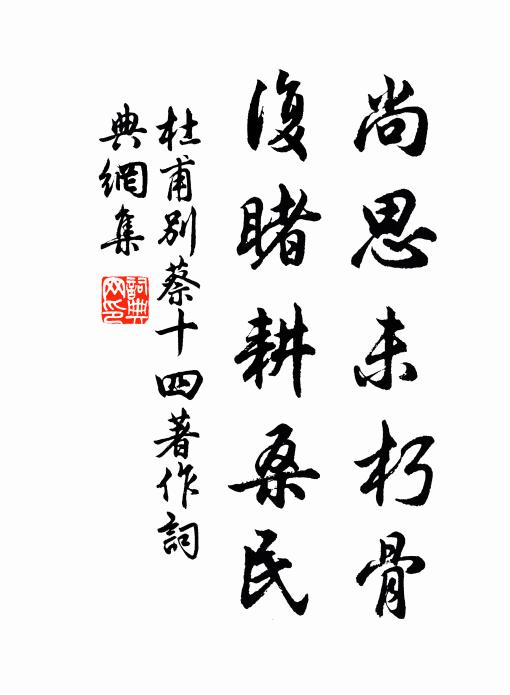 尚思未朽骨
復睹耕桑民
杜甫別蔡十四著作詞
典網集
詞典
网印